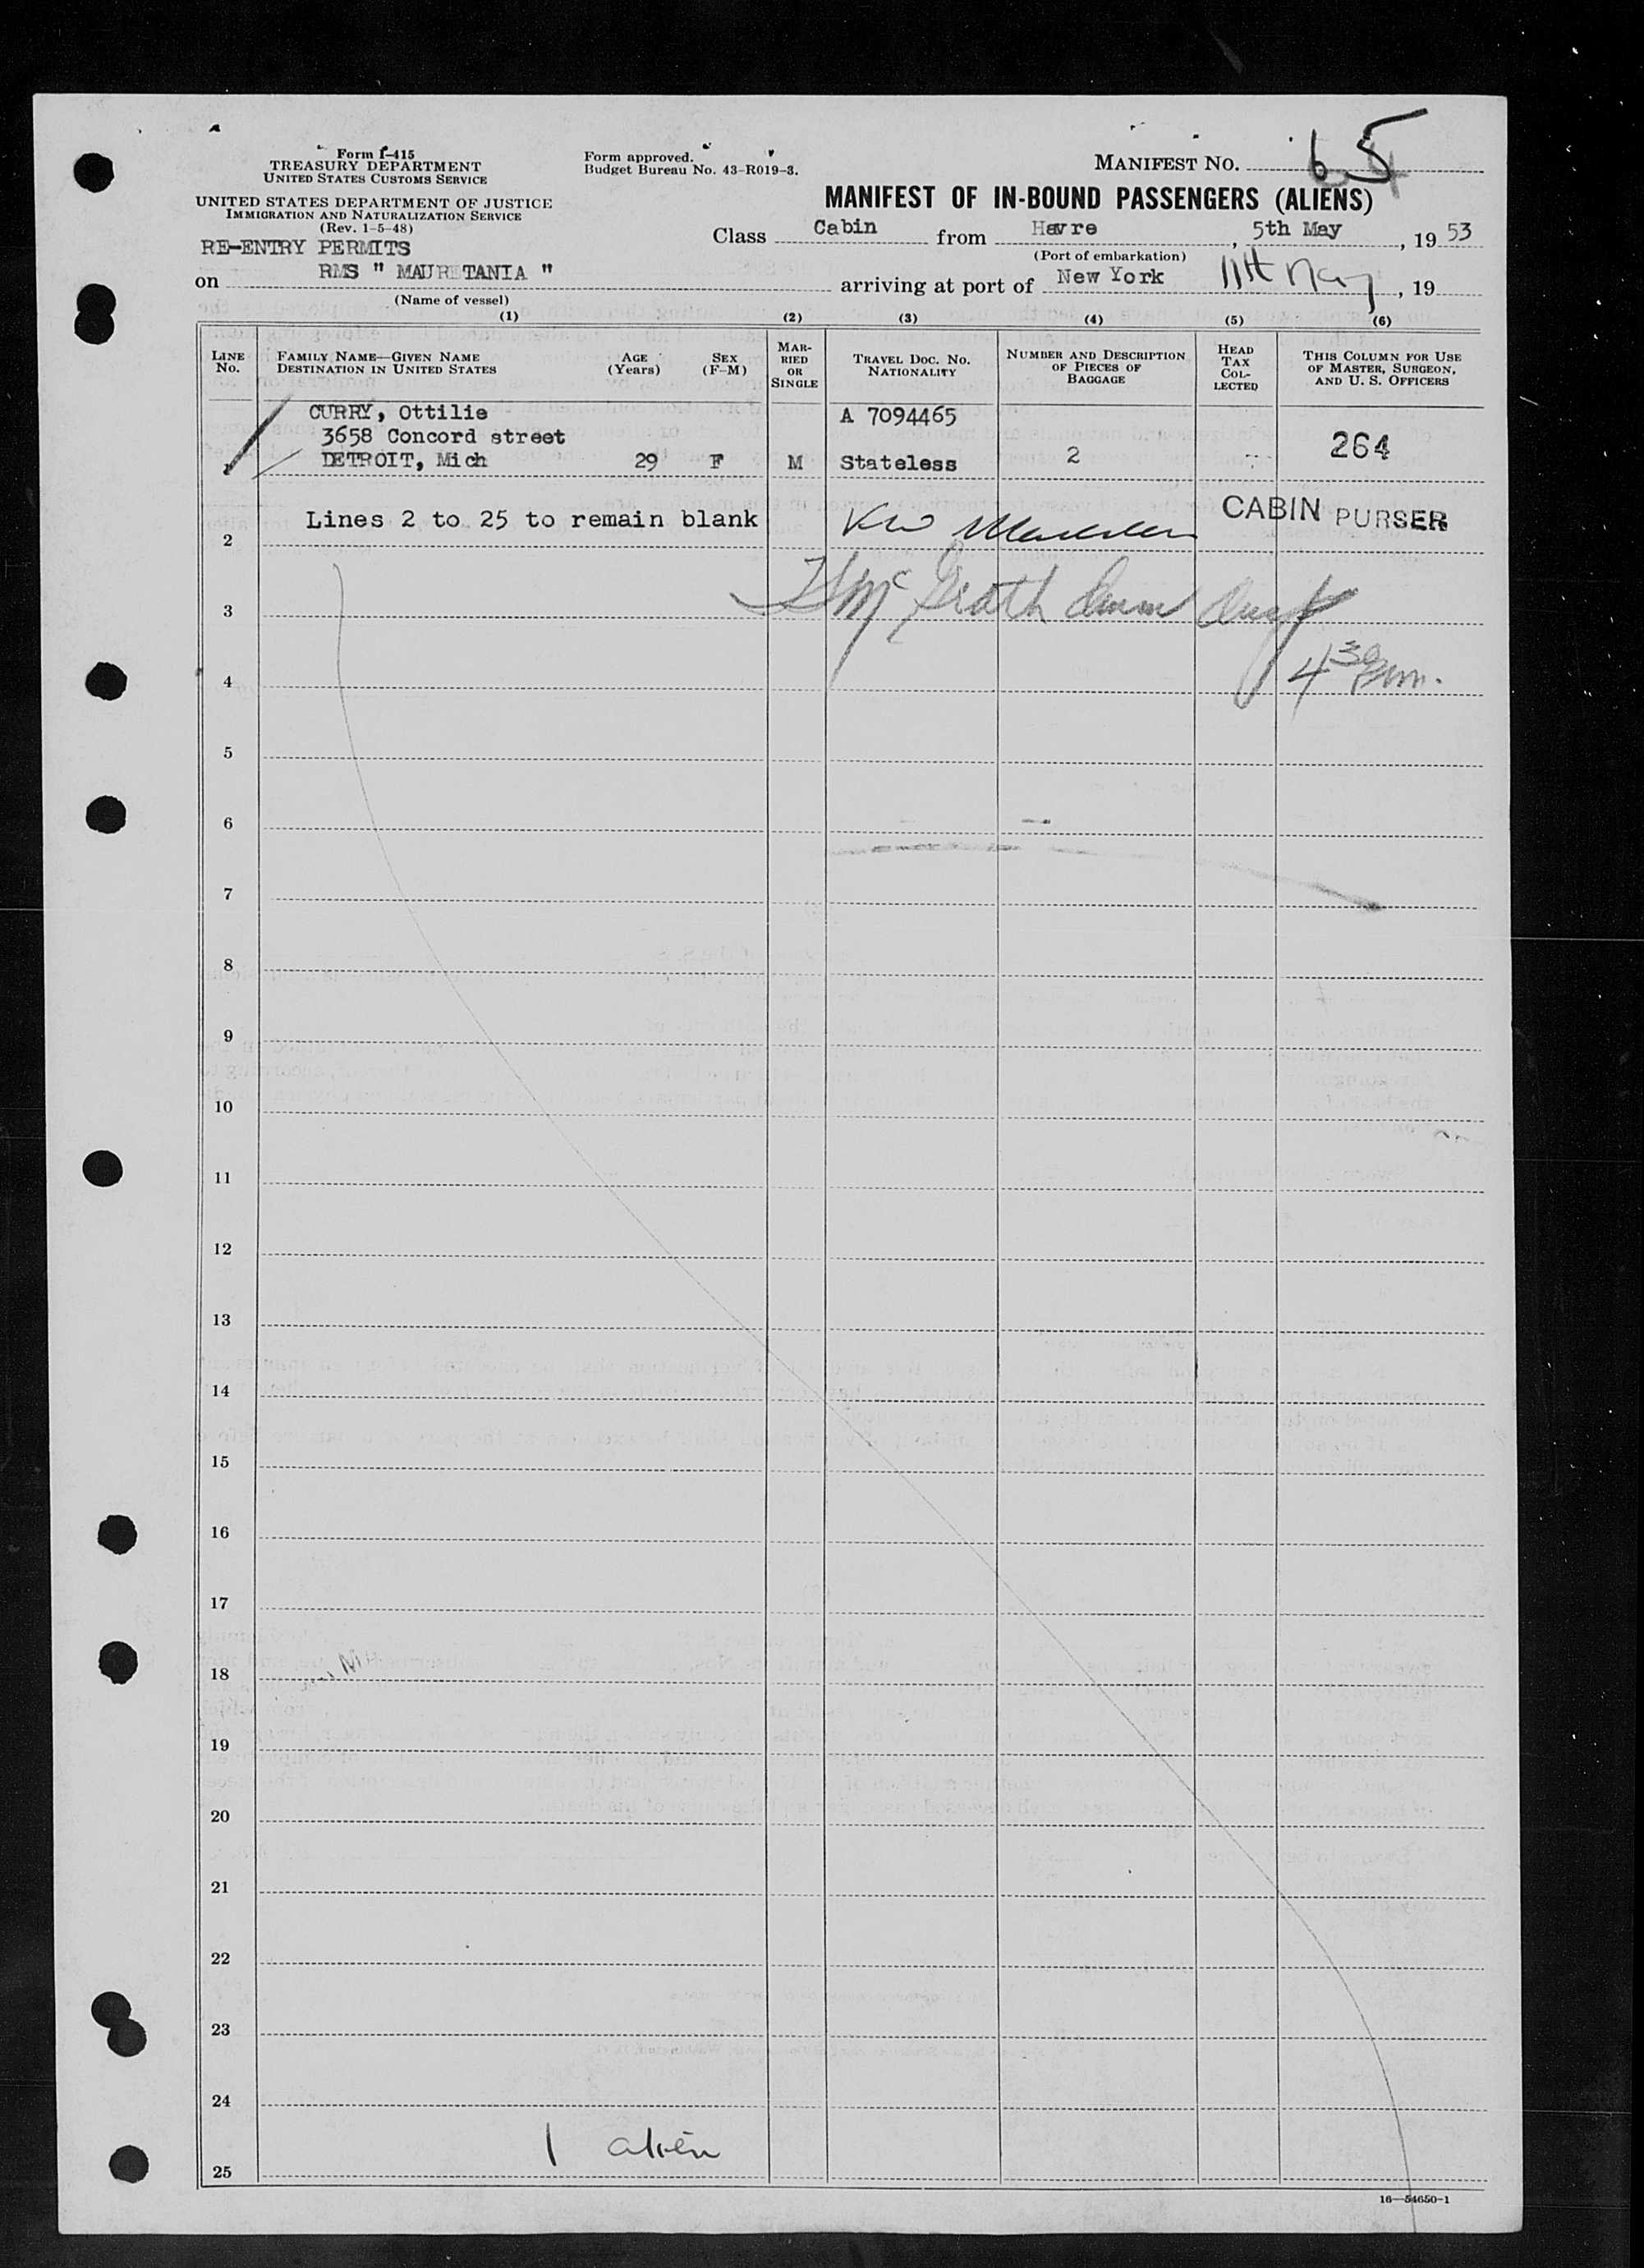 Form I-415
TREASURY DEPARTMENT
UNITED STATES CUSTOMS SERVICE
UNITED STATES DEPARTMENT OF JUSTICE
IMMIGRATION AND NATURALIZATION SERVICE
(Rev. 1-5-48)
RE-ENTRY PERMITS
Form approved.
Budget Bureau No. 43-R019-3.
MANIFEST NO. 65
MANIFEST OF IN-BOUND PASSENGERS (ALIENS)
Class Cabin from Havre, 5th May, 19 53
(Port of embarkation)
on RMS " MAURETANIA " arriving at port of New York 11th May, 19
(Name of vessel)
(1) (2) (3) (4) (5) (6)
LINE No. FAMILY NAME—GIVEN NAME DESTINATION IN UNITED STATES AGE (Years) SEX (F-M) MARRIED OR SINGLE TRAVEL DOC. NO. NATIONALITY NUMBER AND DESCRIPTION OF PIECES OF BAGGAGE HEAD TAX COLLECTED THIS COLUMN FOR USE OF MASTER, SURGEON, AND U. S. OFFICERS
CURRY, Ottilie A 7094465
3658 Concord street 264
1 DETROIT, Mich 29 F M Stateless 2 -
CABIN PURSER
2 Lines 2 to 25 to remain blank
3 McGrath
4 4 30 pm.
5
6
7
8
9
10
11
12
13
14
15
16
17
18
19
20
21
22
23
24
1 alien
25
16—54650-1